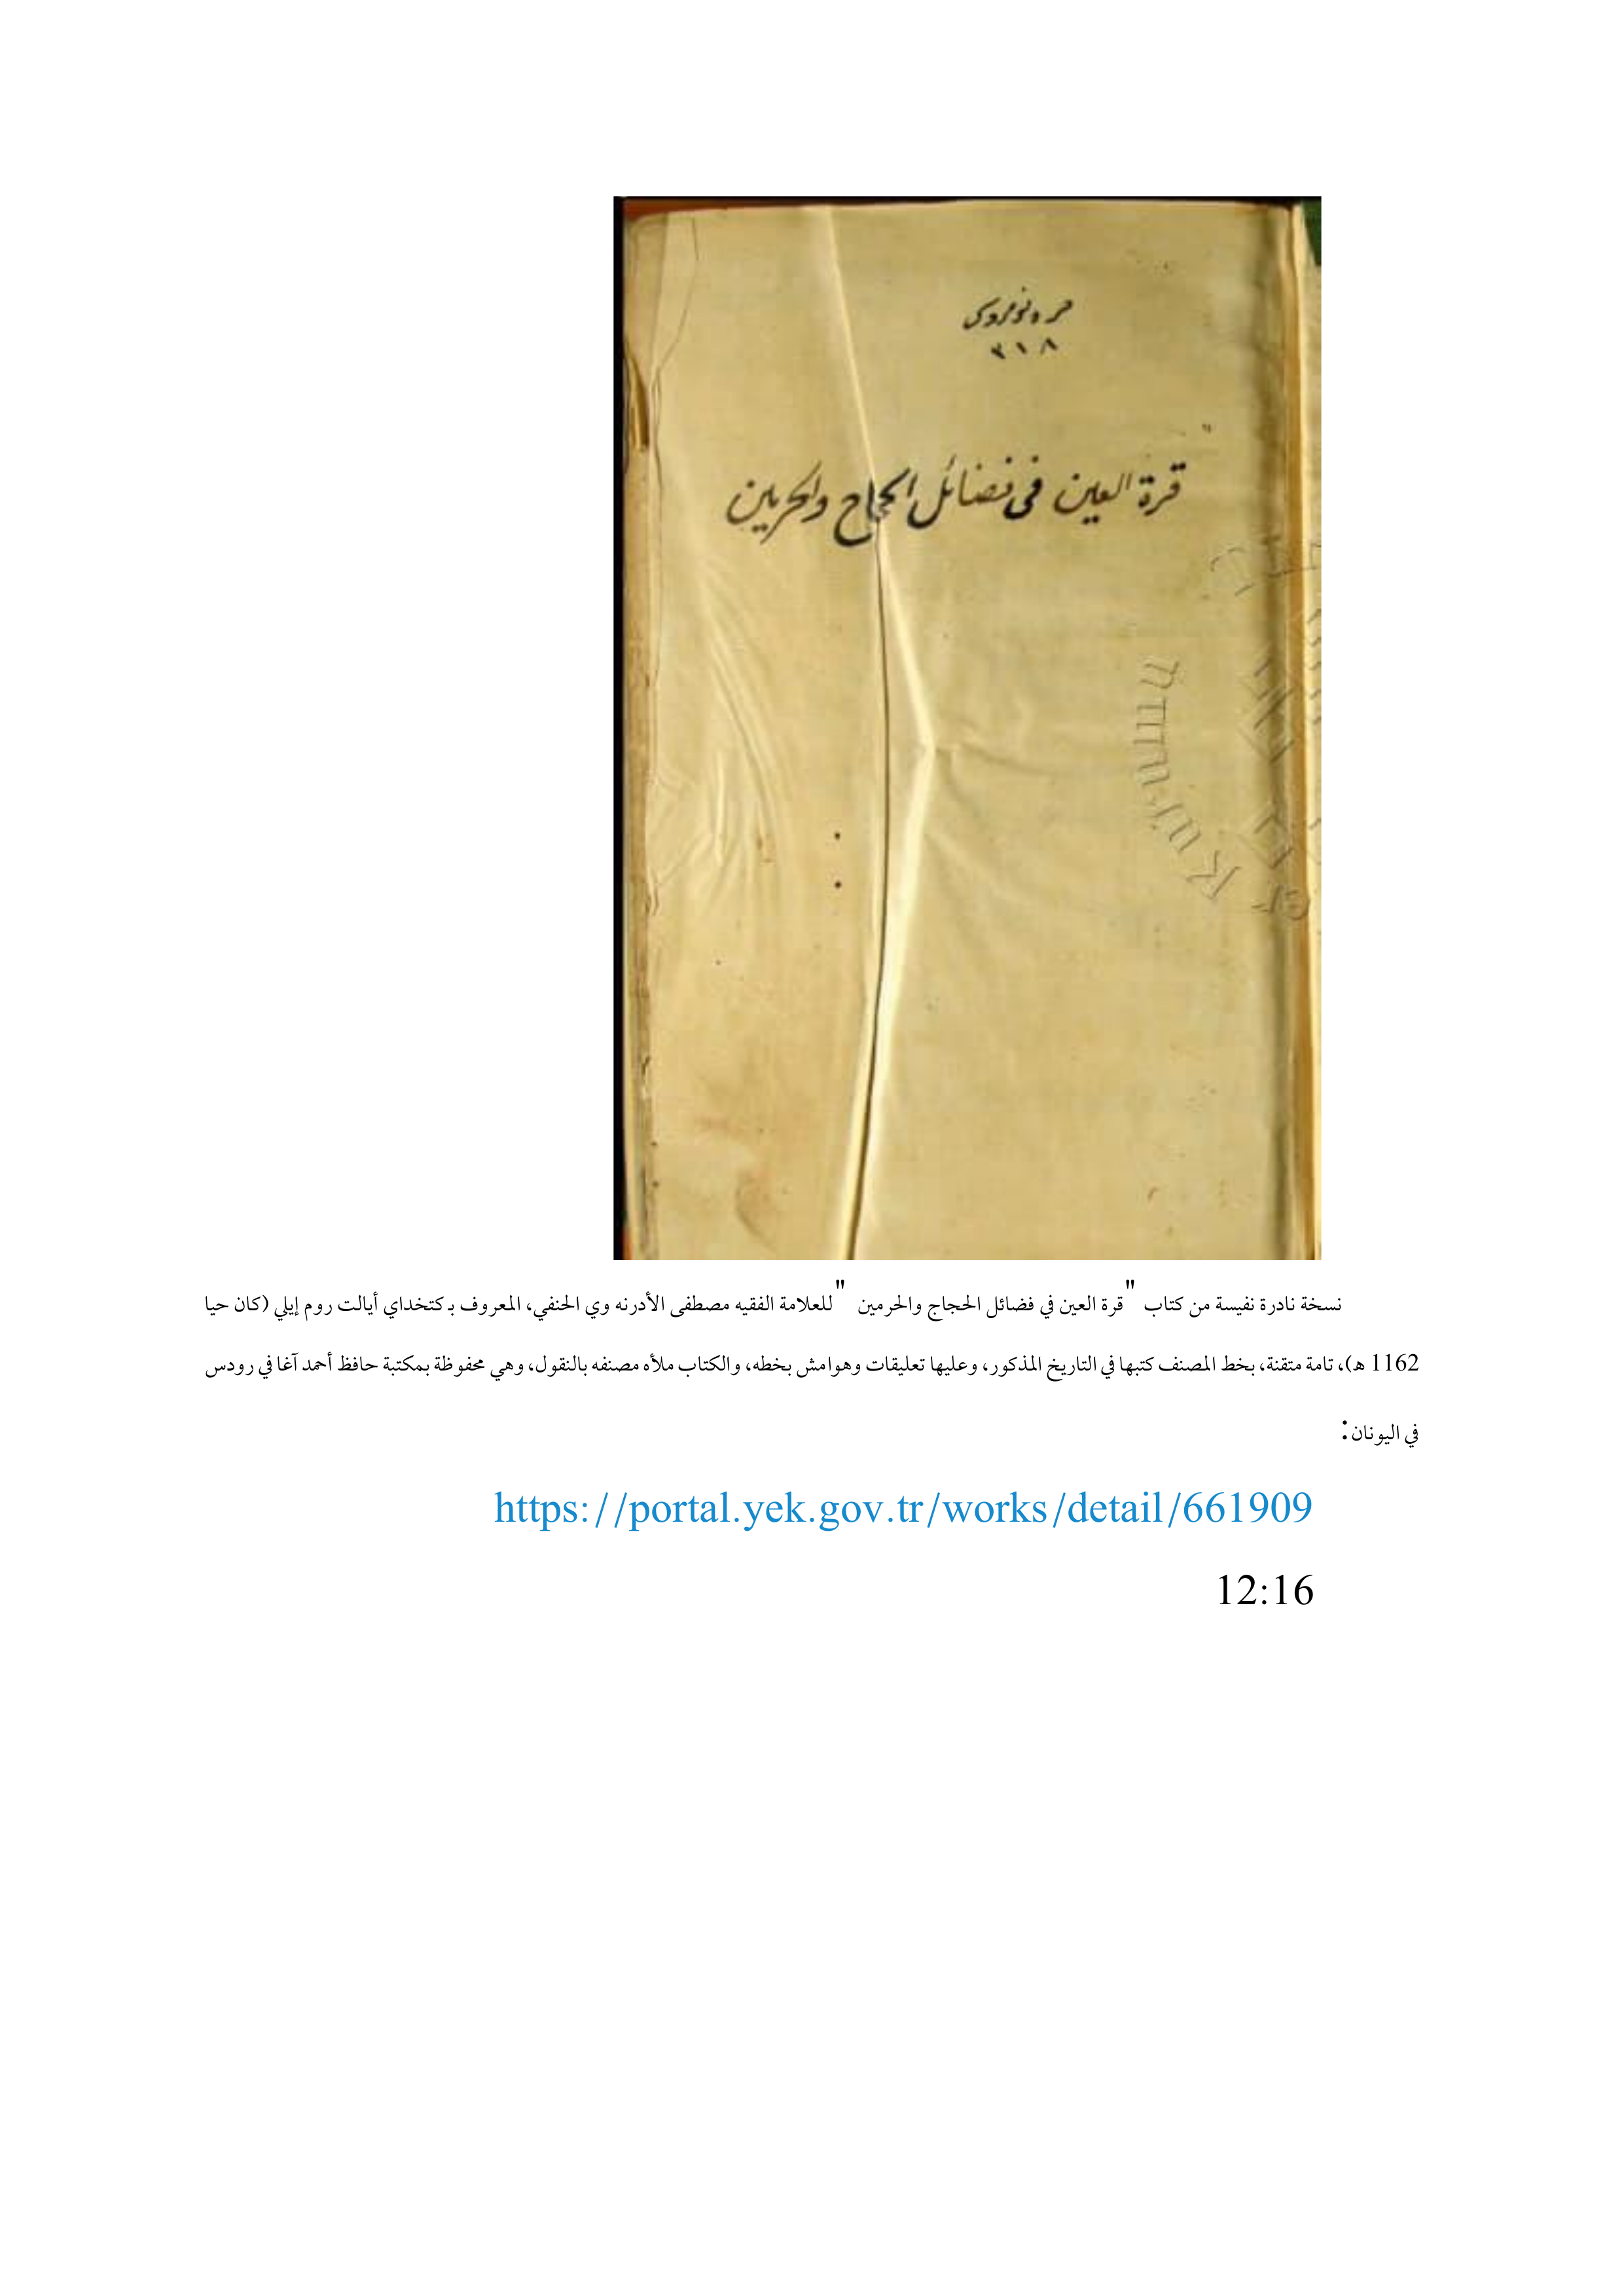 ٣١٨
قرة العين فى فضائل الحجاج والحرمين
نسخة نادرة نفيسة من كتاب "قرة العين في فضائل الحجاج والحرمين" للعلامة الفقيه مصطفى الأدرنه وي الحنفي، المعروف بـ كتخداي أيالت روم إيلي (كان حيا
1162 هـ)، تامة متقنة، بخط المصنف كتبها في التاريخ المذكور، وعليها تعليقات وهوامش بخطه، والكتاب ملأه مصنفه بالنقول، وهي محفوظة بمكتبة حافظ أحمد آغا في رودس
في اليونان:
https://portal.yek.gov.tr/works/detail/661909
12:16